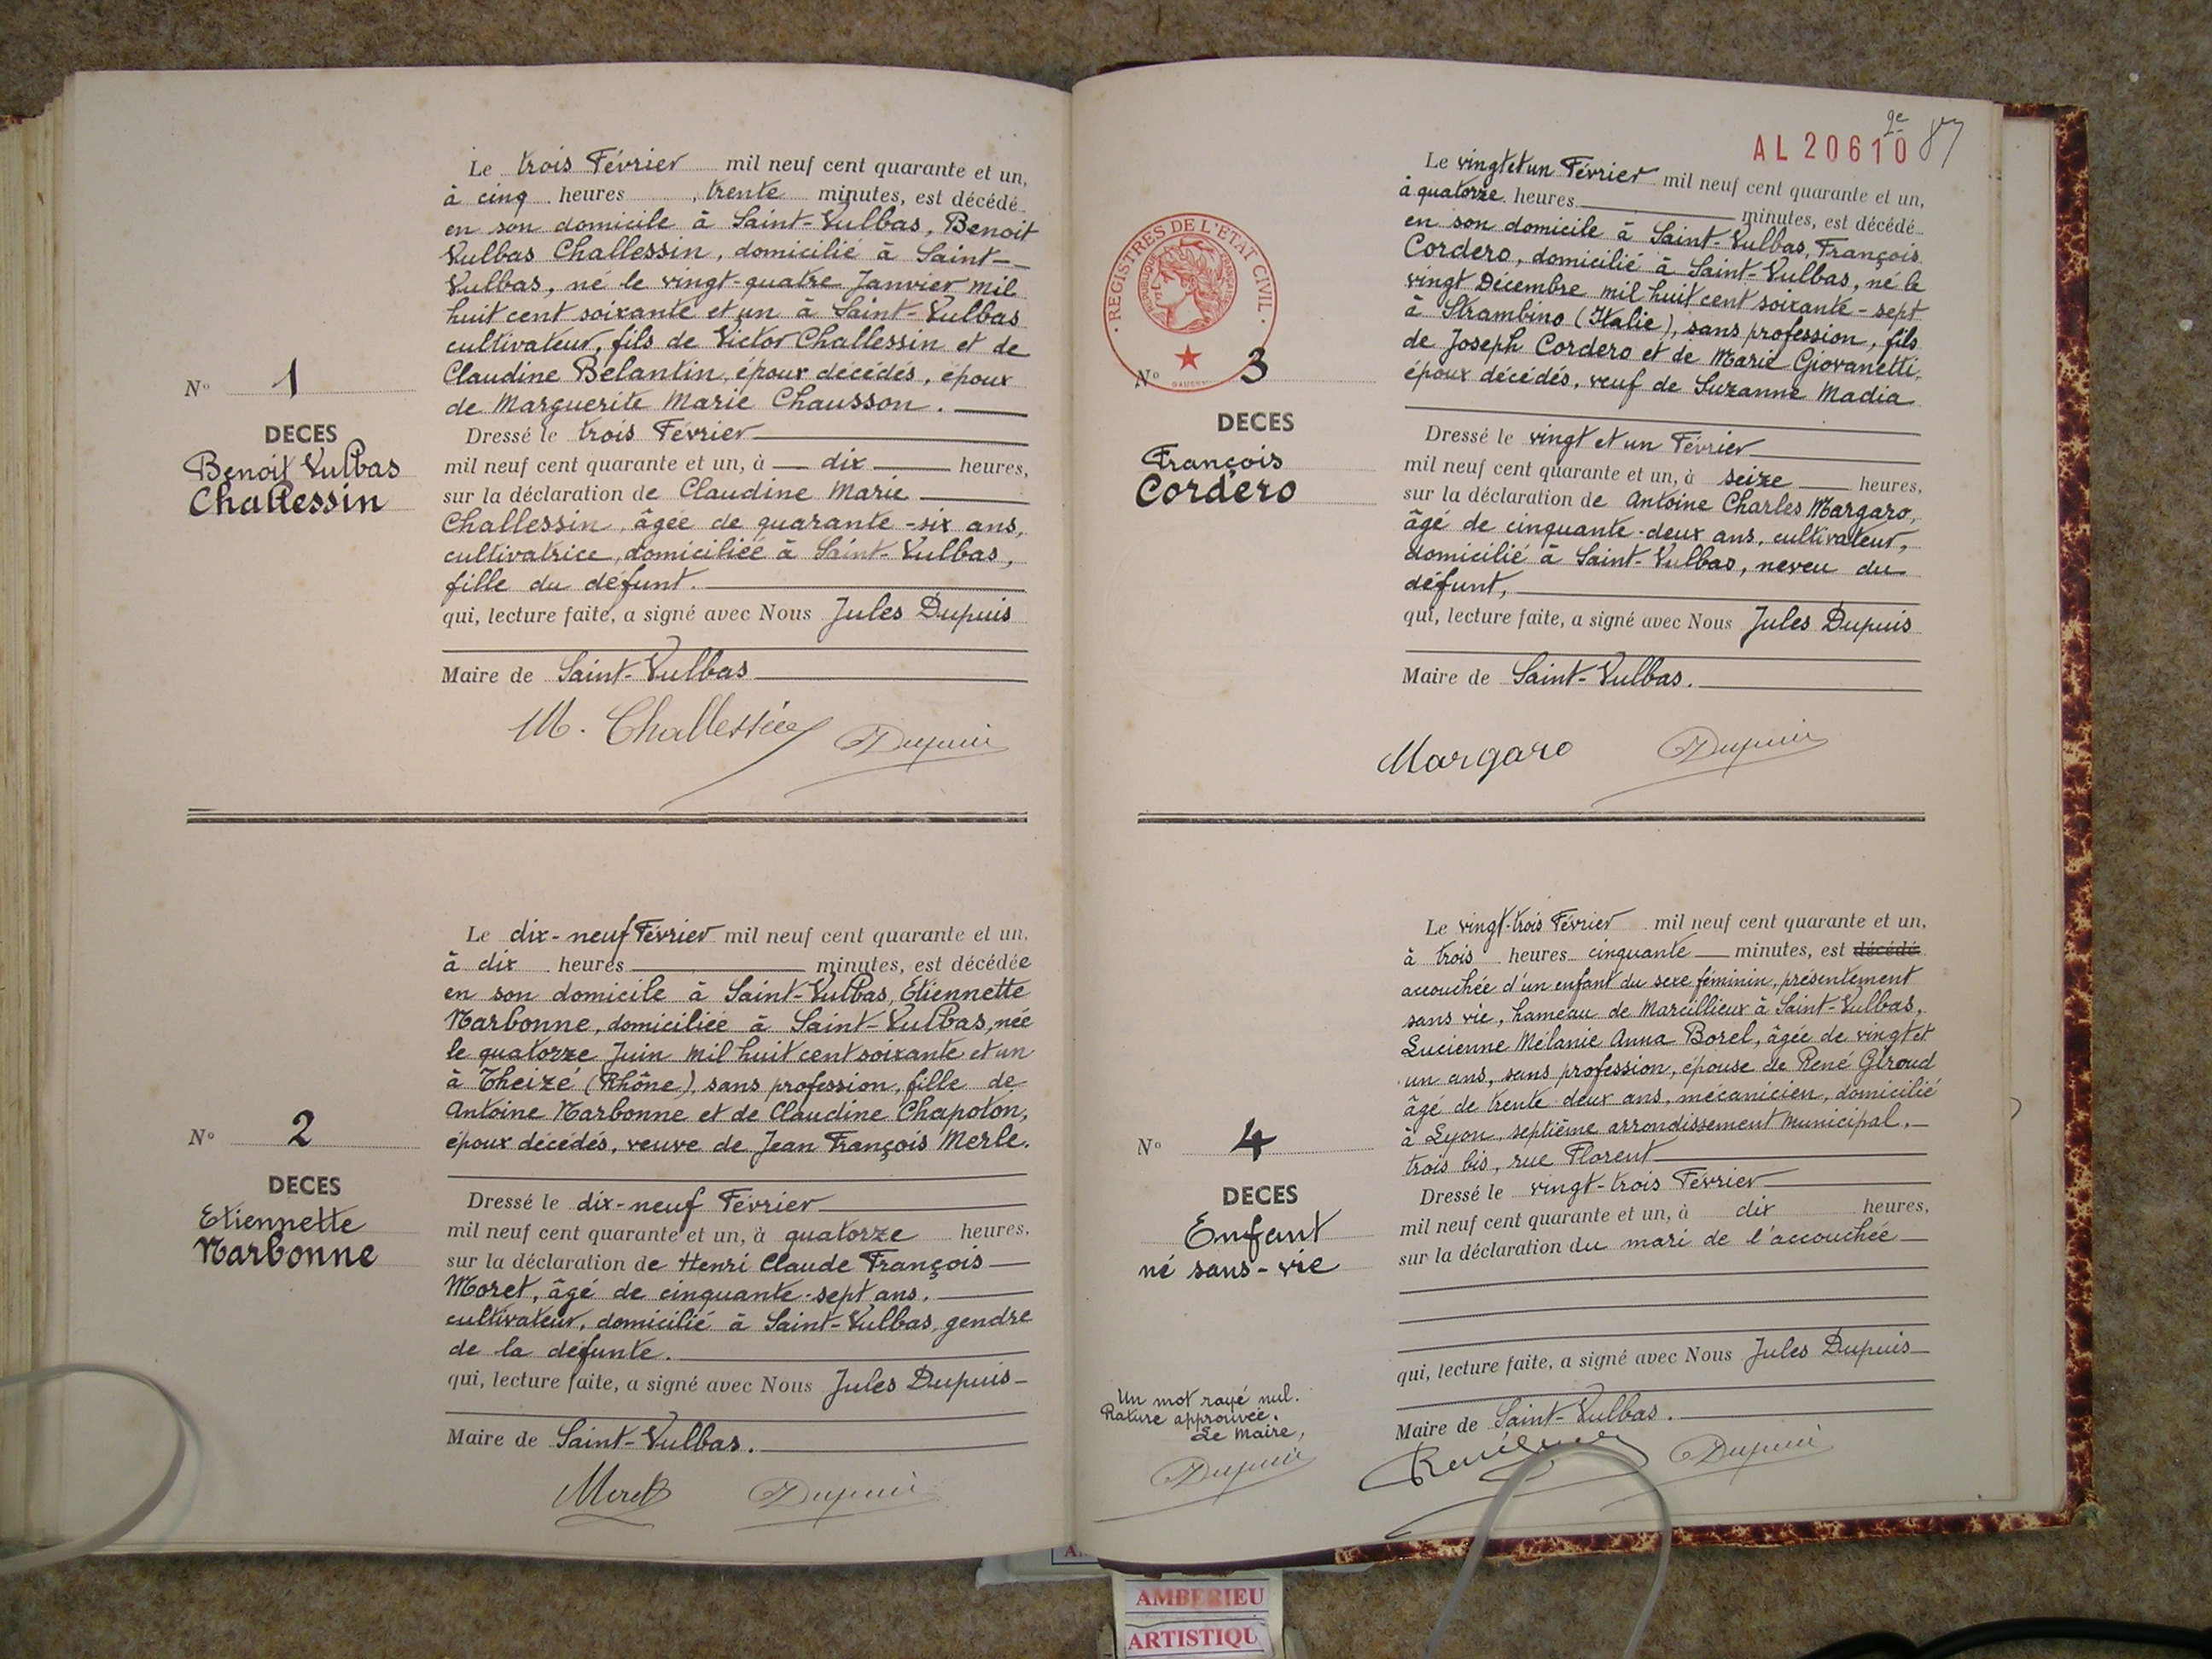 Le trois Février mil neuf cent quarante et un,
à cinq heures, trente minutes, est décédé
en son domicile à Saint-Vulbas, Benoit
Vulbas Challessin, domicilié à Saint-
Vulbas, né le vingt-quatre Janvier mil
huit cent soixante et un à Saint-Vulbas
cultivateur, fils de Victor Challessin et de
Claudine Belantin, époux décédés, époux
de Marguerite Marie Chausson.
N° 1
DECES
Benoit Vulbas
Challessin
Dressé le trois Février
mil neuf cent quarante et un, à dix heures,
sur la déclaration de Claudine Marie
Challessin, âgée de quarante-six ans,
cultivatrice, domiciliée à Saint-Vulbas,
fille du défunt.
qui, lecture faite, a signé avec Nous Jules Dupuis
Maire de Saint-Vulbas
M. Challessin Dupuis
Le dix-neuf Février mil neuf cent quarante et un,
à dix heures minutes, est décédée
en son domicile à Saint-Vulbas, Etiennette
Narbonne, domiciliée à Saint-Vulbas, née
le quatorze Juin mil huit cent soixante et un
à Theizé (Rhône), sans profession, fille de
Antoine Narbonne et de Claudine Chapoton,
époux décédés, veuve de Jean François Merle.
N° 2
DECES
Etiennette
Narbonne
Dressé le dix-neuf Février
mil neuf cent quarante et un, à quatorze heures,
sur la déclaration de Henri Claude François
Moret, âgé de cinquante-sept ans,
cultivateur, domicilié à Saint-Vulbas, gendre
de la défunte.
qui, lecture faite, a signé avec Nous Jules Dupuis
Maire de Saint-Vulbas.
Moret Dupuis
2e
AL 20610 87
REGISTRES DE L'ÉTAT CIVIL
RÉPUBLIQUE FRANÇAISE
Le vingt et un Février mil neuf cent quarante et un,
à quatorze heures minutes, est décédé
en son domicile à Saint-Vulbas, François
Cordero, domicilié à Saint-Vulbas, né le
vingt Décembre mil huit cent soixante-sept
à Strambino (Italie), sans profession, fils
de Joseph Cordero et de Marie Giovanetti,
époux décédés, veuf de Suzanne Madia
N° 3
DECES
François
Cordero
Dressé le vingt et un Février
mil neuf cent quarante et un, à seize heures,
sur la déclaration de Antoine Charles Margaro,
âgé de cinquante-deux ans, cultivateur,
domicilié à Saint-Vulbas, neveu du
défunt,
qui, lecture faite, a signé avec Nous Jules Dupuis
Maire de Saint-Vulbas.
Margaro Dupuis
Le vingt-trois Février mil neuf cent quarante et un,
à trois heures cinquante minutes, est décédé
accouchée d'un enfant du sexe féminin, présentement
sans vie, hameau de Marcillieux à Saint-Vulbas,
Lucienne Mélanie Anna Borel, âgée de vingt et
un ans, sans profession, épouse de René Giroud
âgé de trente-deux ans, mécanicien, domicilié
à Lyon, septième arrondissement municipal,
trois bis, rue Florent
N° 4
DECES
Enfant
né sans-vie
Dressé le vingt-trois Février
mil neuf cent quarante et un, à dix heures,
sur la déclaration du mari de l'accouchée
qui, lecture faite, a signé avec Nous Jules Dupuis
Maire de Saint-Vulbas.
Dupuis
Un mot rayé nul.
Rature approuvée.
Le Maire,
Dupuis
AMBERIEU
ARTISTIQU